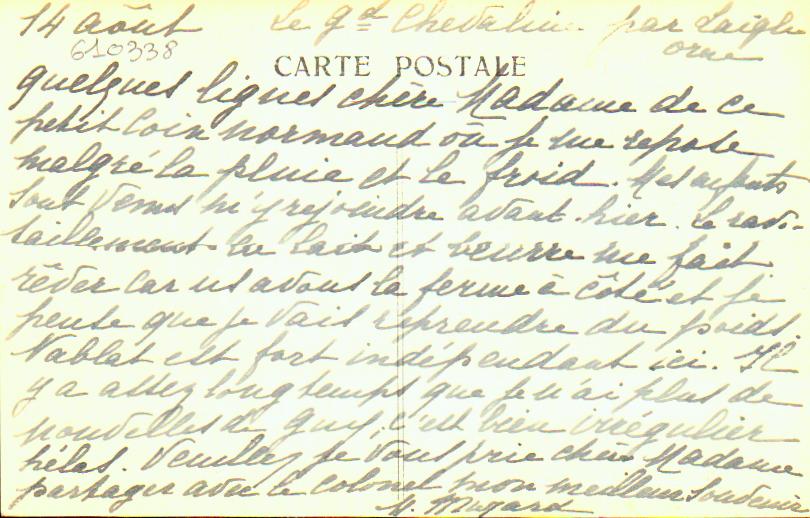 14 août Le gd Chevaline par Laigle
610338 orne
CARTE POSTALE
Quelques lignes chère Madame de ce
petit coin normand où je me repose
malgré la pluie et le froid. Mes enfants
sont venus m'y rejoindre avant-hier. Le ravi-
taillement en lait et beurre me fait
rêver car ns avons la ferme à côté et je
pense que je vais reprendre du poids.
est fort indépendant ici. Il
y a assez longtemps que je n'ai plus de
nouvelles de Guy, c'est bien irrégulier
hélas. Veuillez je vous prie chère Madame
partager avec le Colonel mon meilleur souvenir